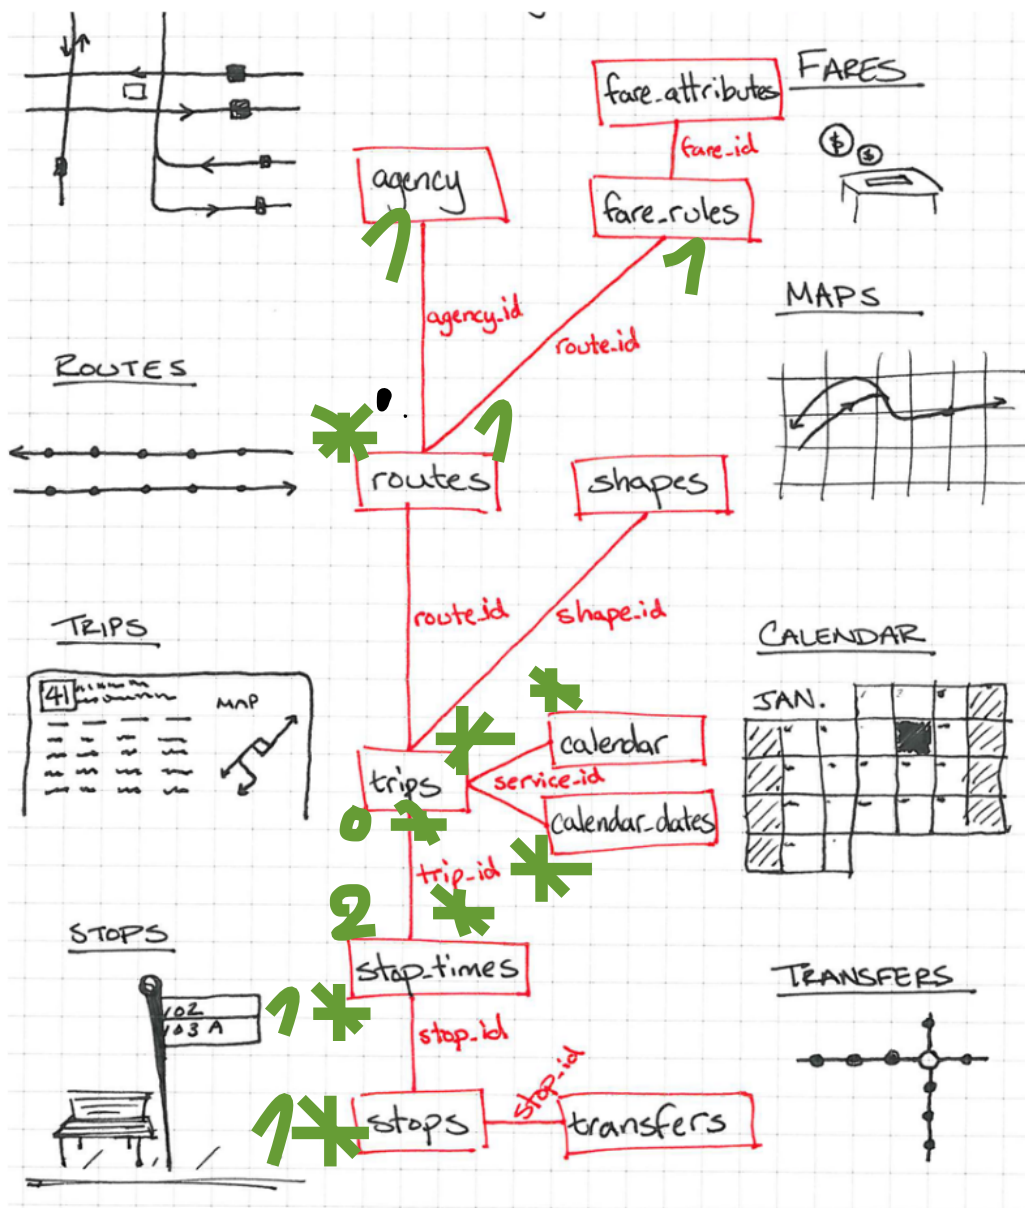 FARES
fare_attributes
$ $
fare_id
agency
fare_rules
1
1
MAPS
agency_id
route_id
ROUTES
* 1
routes
shapes
route_id
shape_id
TRIPS
CALENDAR
41
MAP
JAN.
*
*
calendar
trips
service_id
calendar_dates
0 *
trip_id
*
2 *
STOPS
stop_times
TRANSFERS
102
103 A
1 *
stop_id
stop_id
1 *
stops
transfers